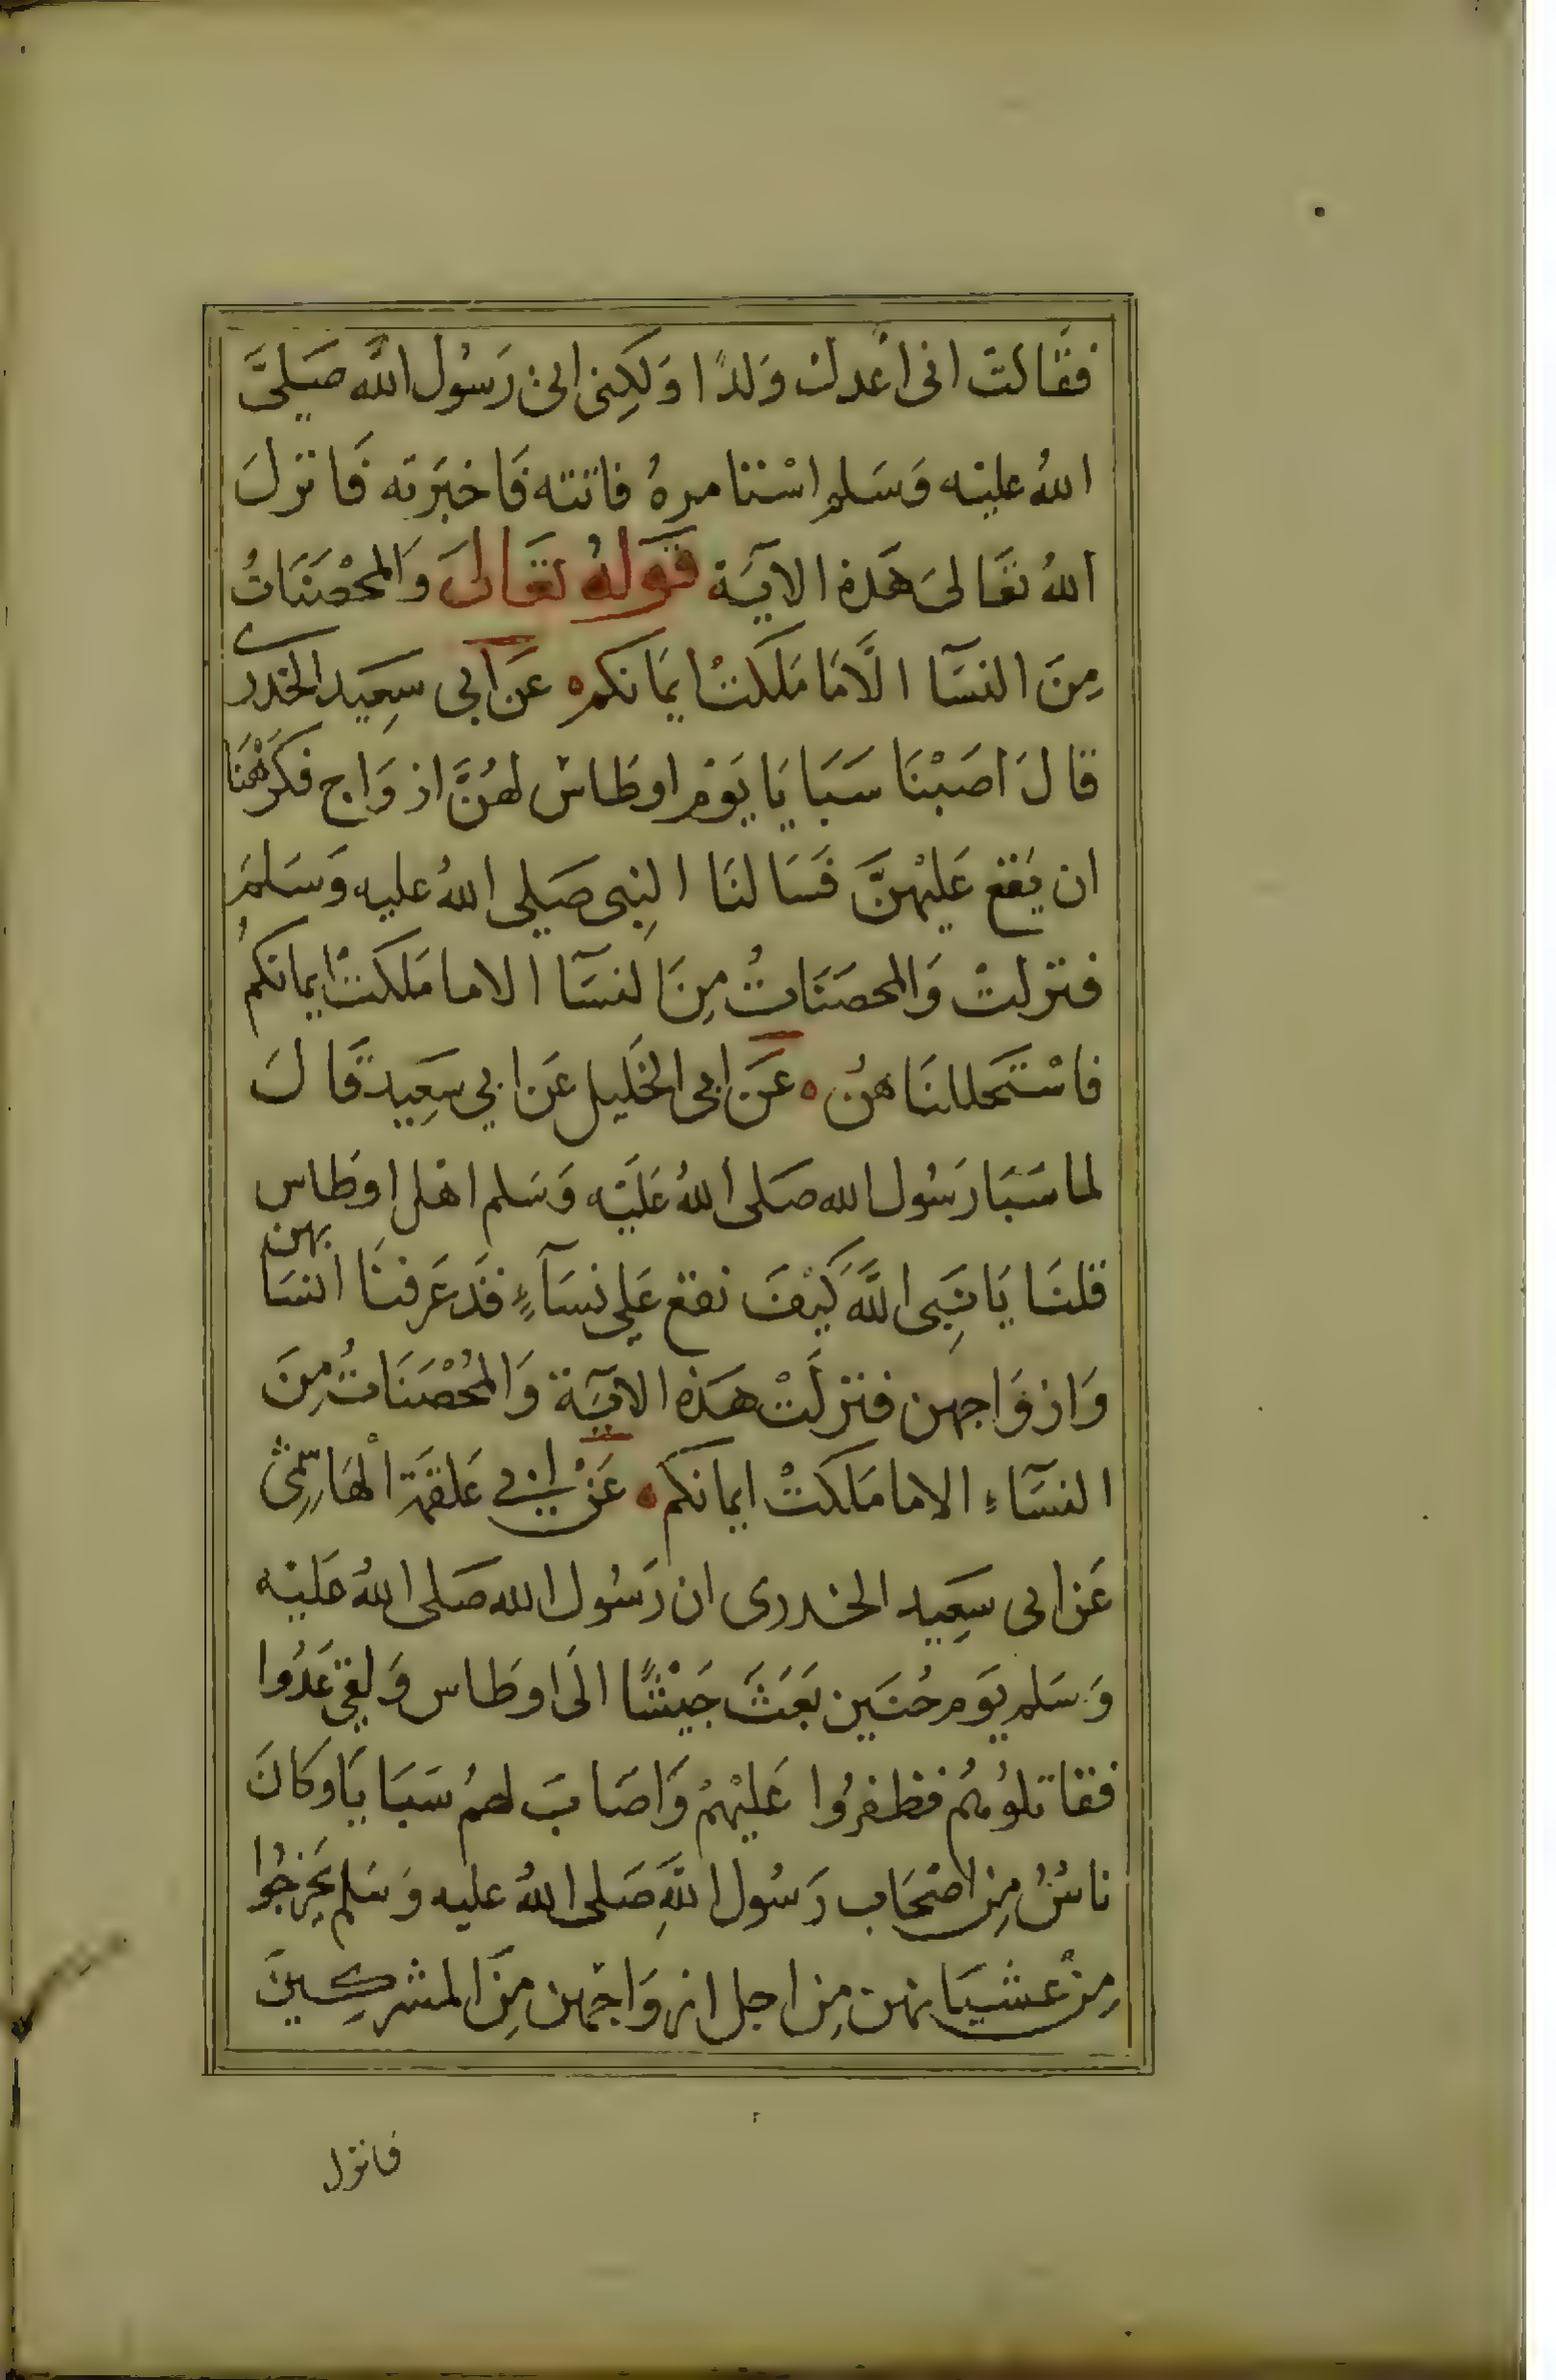 فقالت انى اعدك ولدا ولكنى اتى رسول الله صلى
الله عليه وسلم استنامره فاتته فاخبرته فانزل
الله تعالى هذه الاية قوله تعالى والمحصنات
من النسآ الا ما ملكت ايمانكم عن ابى سعيد الخدرى
قال اصبنا سبايا يوم اوطاس لهن ازواج فكرهنا
ان يقع عليهن فسالنا النبى صلى الله عليه وسلم
فنزلت والمحصنات من النسآ الا ما ملكت ايمانكم
فاستحللناهن عن ابى الخليل عن ابي سعيد قال
لما سبا رسول الله صلى الله عليه وسلم اهل اوطاس
قلنا يا نبى الله كيف نقع على نسآء قد عرفنا انسابهن
وازواجهن فنزلت هذه الاية والمحصنات من
النسآء الا ما ملكت ايمانكم عن ابى علقمة الهاشمى
عن ابى سعيد الخدرى ان رسول الله صلى الله عليه
وسلم يوم حنين بعث جيشا الى اوطاس ولقى عدوا
فقاتلوهم فظفروا عليهم واصاب لهم سبايا وكان
ناس من اصحاب رسول الله صلى الله عليه وسلم يخرجوا
من غشيانهن من اجل ازواجهن من المشركين
فانزل